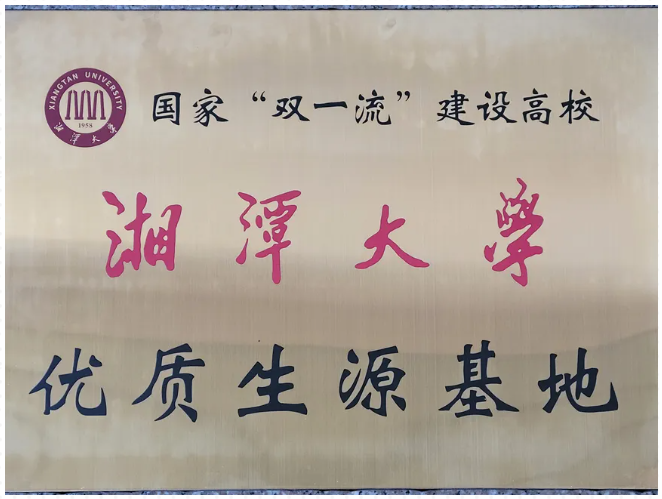 XIANGTAN UNIVERSITY
1958
湘潭大學
国家“双一流”建设高校
湘潭大学
优质生源基地